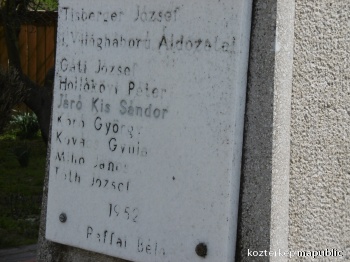 Tisberger József
I. Világháború Áldozatai
Gáti József
Hollókövi Péter
Járó Kis Sándor
Karó György
Kovács Gyula
Mihó János
Tóth József
1952
Raffai Béla
kozterkep.mapublic